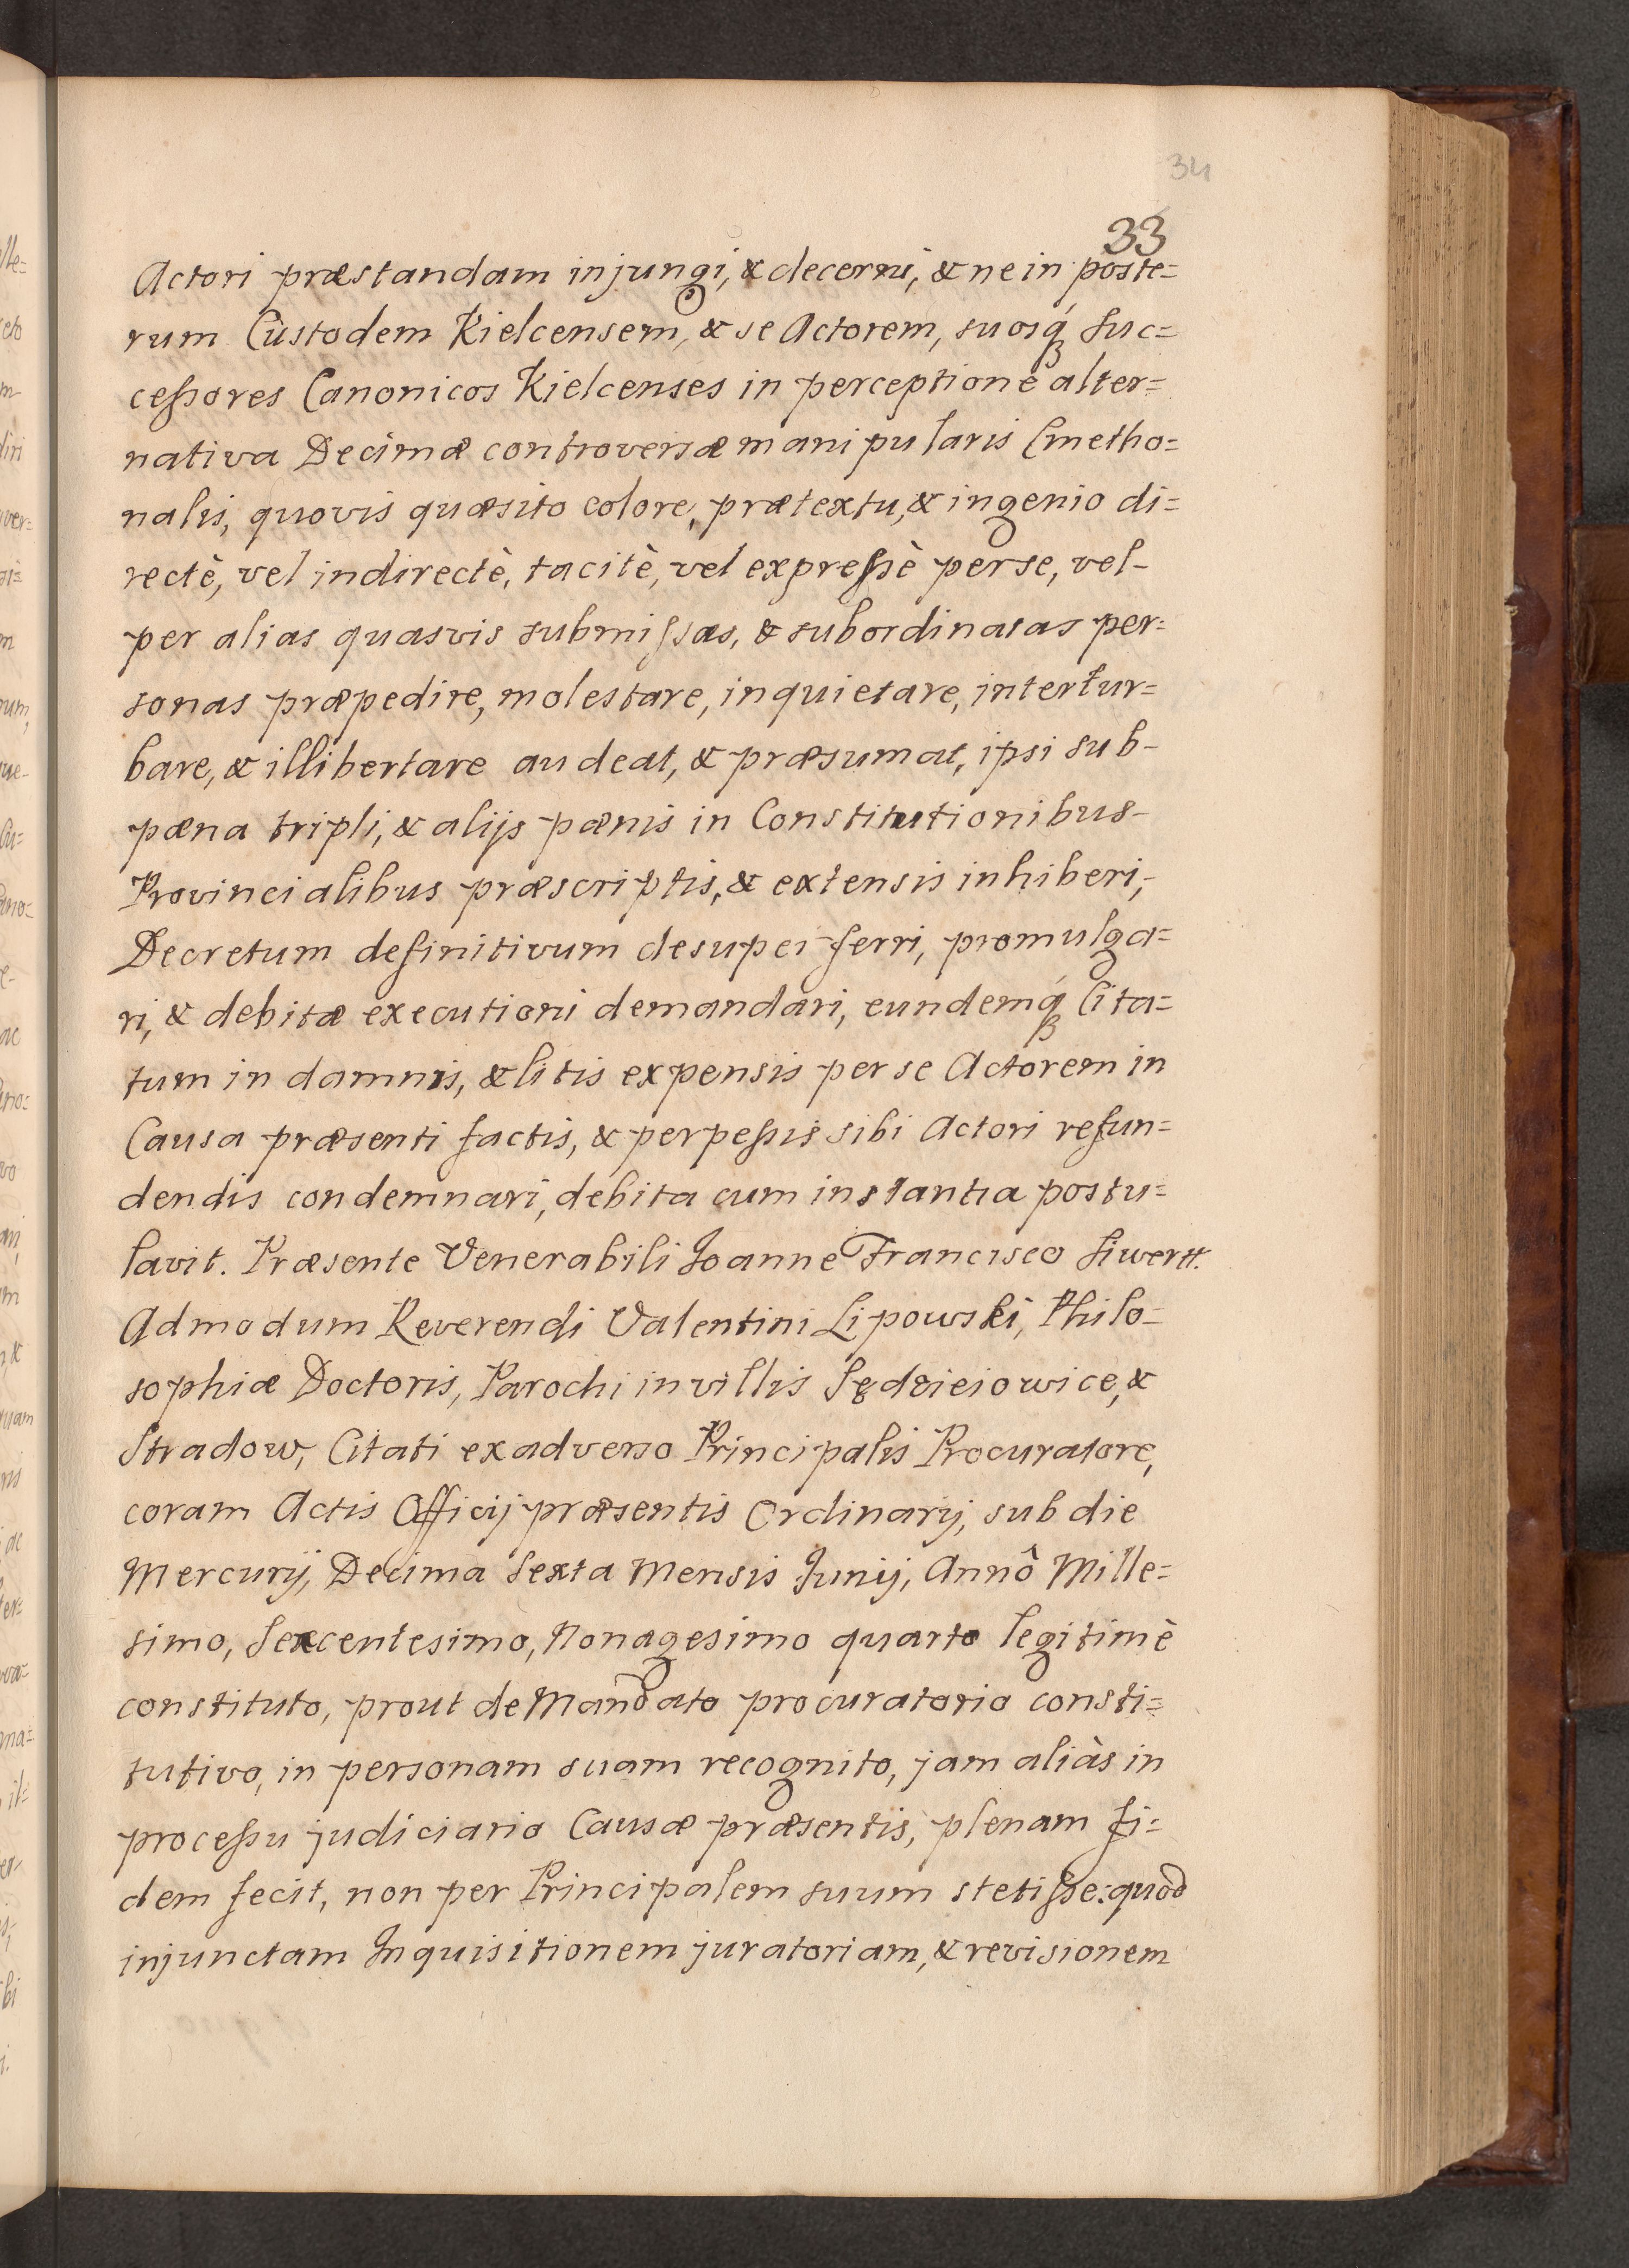 34
33
Actori præstandam injungi, & decerni, & ne in poste=
rum Custodem Kielcensem, & se Actorem, suosq́ꝫ Suc=
ceßores Canonicos Kielcenses in perceptione alter=
nativa Decimæ controversæ manipularis Cmetho=
nalis, quovis quæsito colore, prætextu, & ingenio di=
rectè, vel indirectè, tacitè, vel expreßè per se, vel-
per alias quasvis submißas, & subordinatas per=
sonas præpedire, molestare, inquietare, intertur=
bare, & illibertare audeat, & præsumat, ipsi sub-
pæna tripli, & alijs pænis in Constitutionibus-
Provincialibus præscriptis, & extensis inhiberi,-
Decretum definitivum desuper ferri, promulga=
ri, & debitæ executioni demandari, eundemq́ꝫ Cita=
tum in damnis, & litis expensis per se Actorem in
Causa præsenti factis, & perpeßis sibi Actori refun=
dendis condemnari, debita cum instantia postu=
lavit. Præsente Venerabili Joanne Francisco Siwertt.
Admodum Reverendi Valentini Lipowski, Philo=
sophiæ Doctoris, Parochi in villis Sędzieiowice, &
Stradow, Citati ex adverso Principalis Procuratore,
coram Actis Officij præsentis Ordinarij, sub die
Mercurij, Decima Sexta Mensis Junij, Annô Mille=
simo, Sexcentesimo, Nonagesimo quarto legitimè
constituto, prout de Mandato procuratorio consti=
tutivo, in personam suam recognito, jam aliàs in
proceßu judiciario Causæ præsentis, plenam fi=
dem fecit, non per Principalem suum stetiße: quod
injunctam Inquisitionem juratoriam, & revisionem